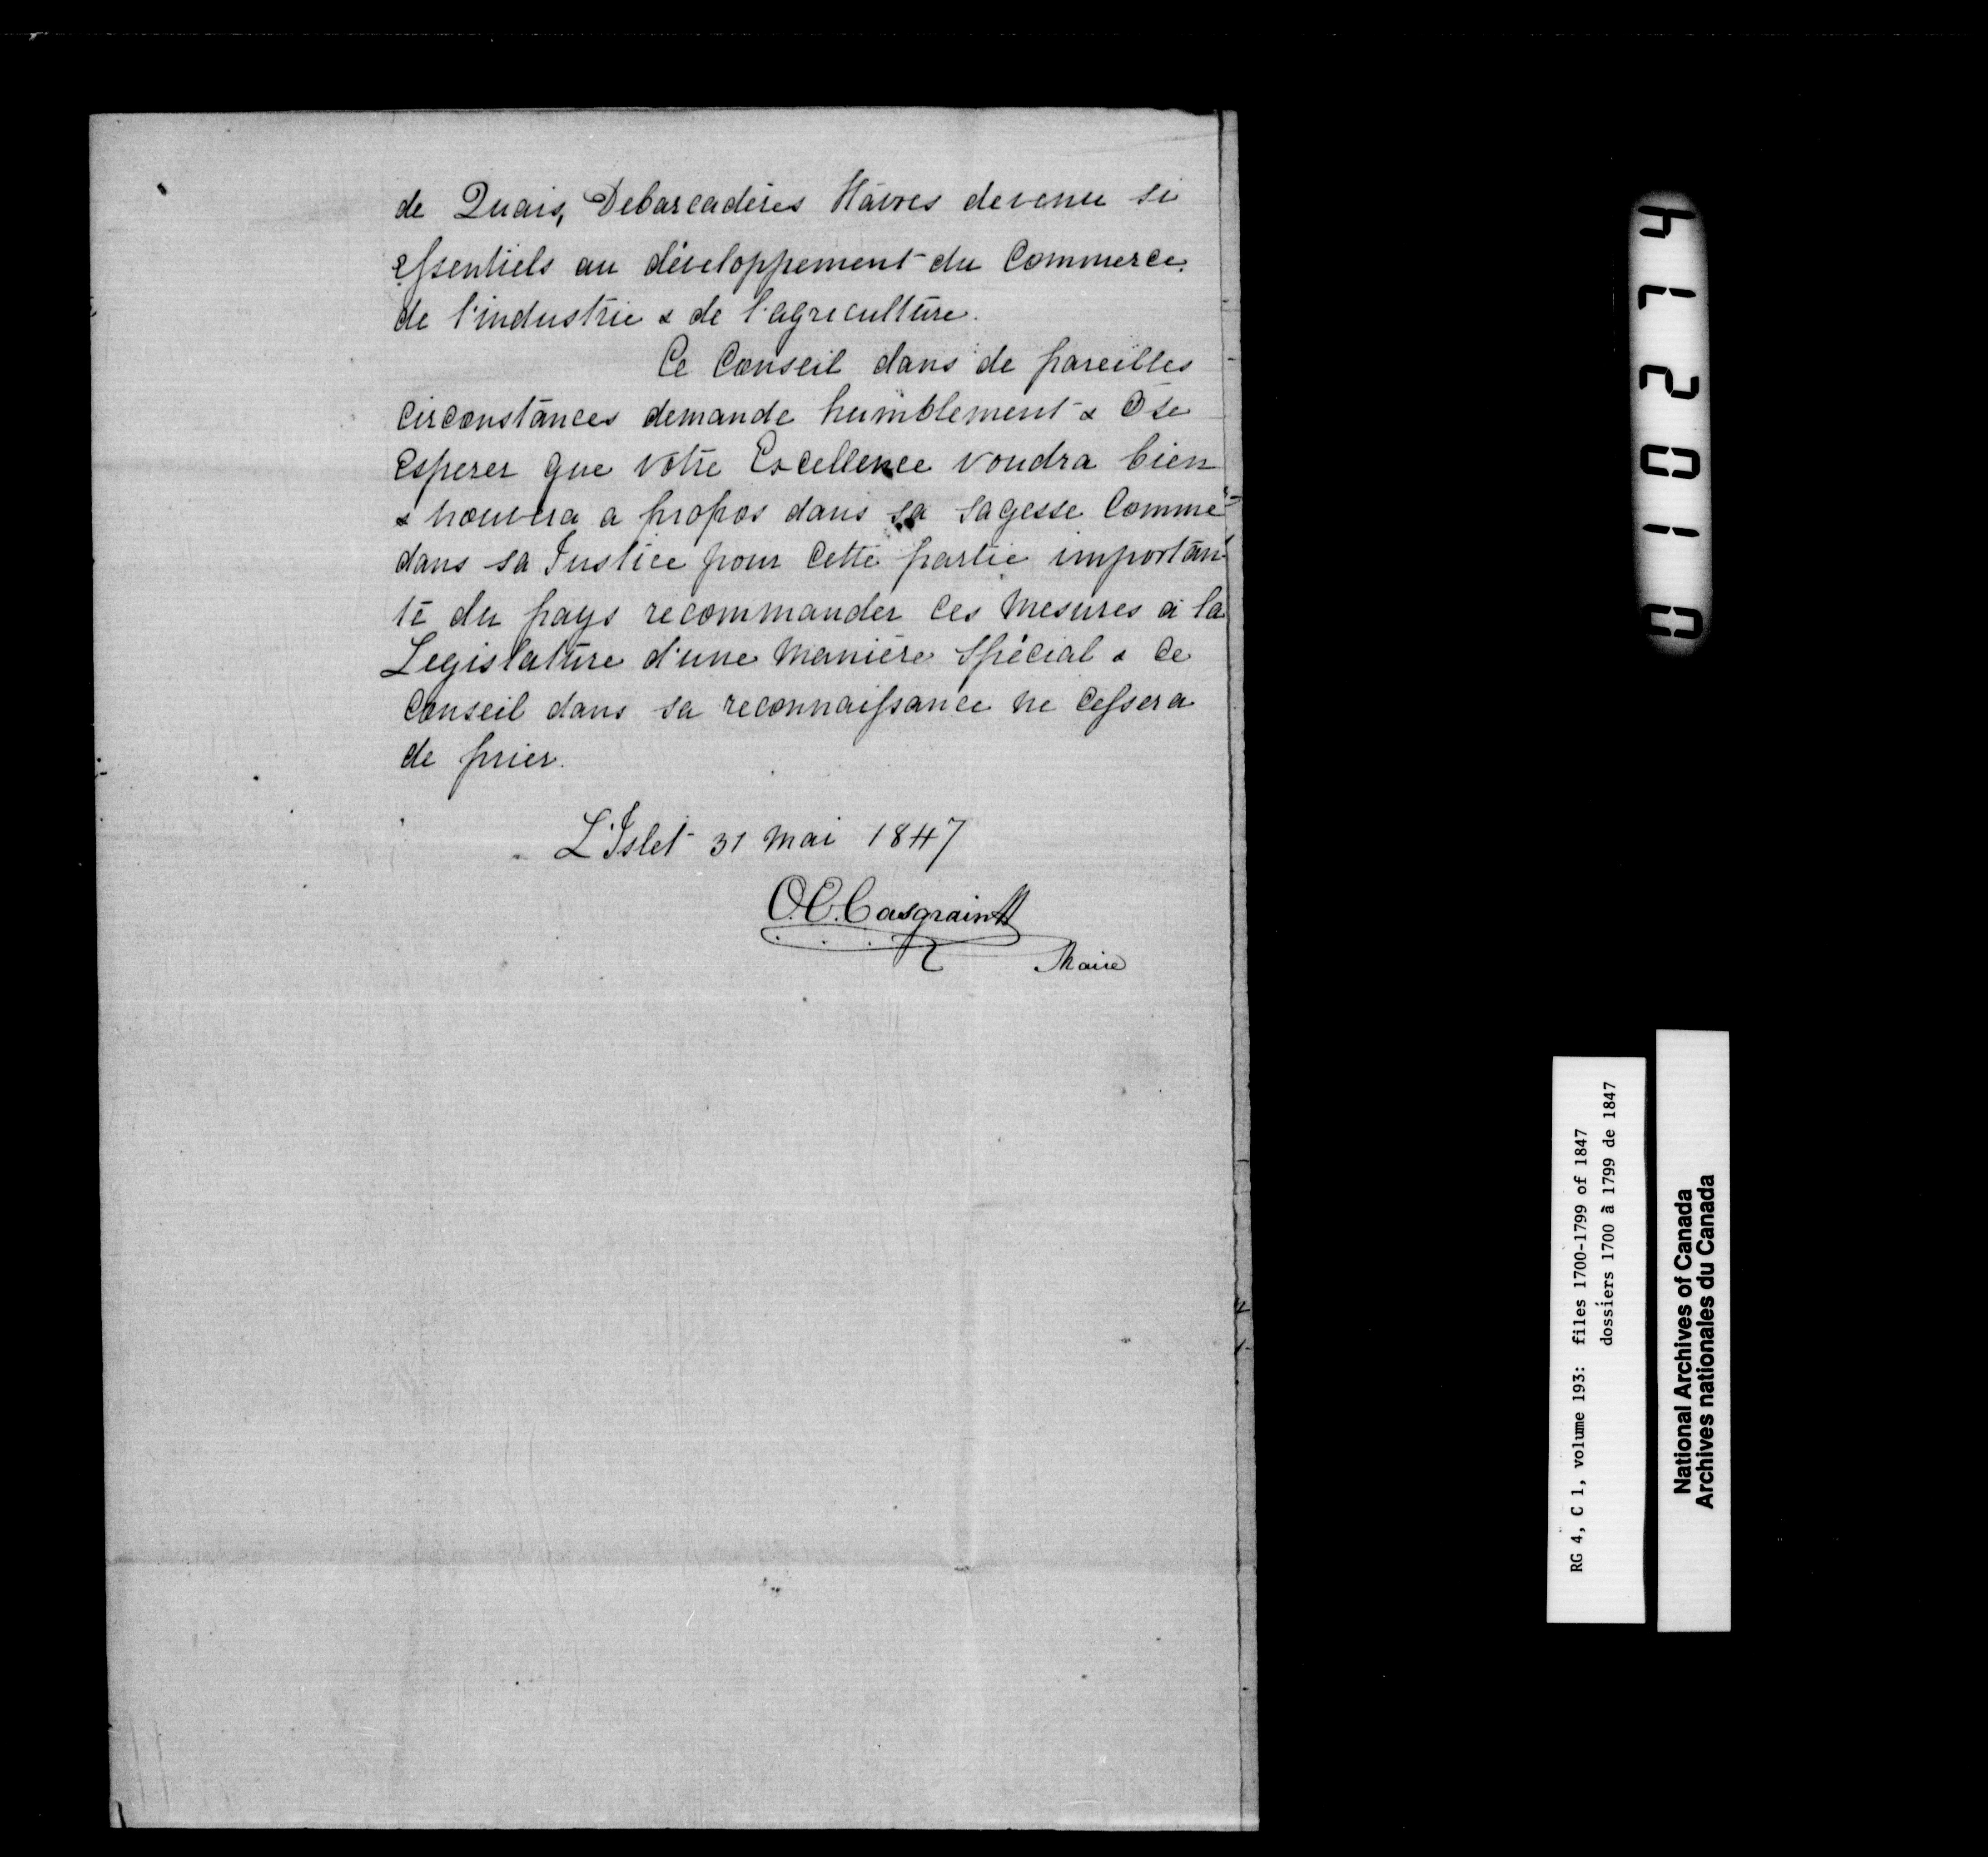 de Quais, Debarcadères Hâvres devenu si
essentiels au développement du Commerce,
de l'industrie & de l'agriculture.
Ce Conseil dans de pareilles
circonstances demande humblement & ôse
esperer que votre Excellence voudra bien
& trouvera a propos dans sa sagesse Comme
dans sa Justice pour Cette partie importan-
te du pays recommander ces mesures à la
Legislature d'une manière Spécial & Ce
Conseil dans sa reconnaissance ne Cessera
de prier.
L'Islet 31 Mai 1847
O.C. Casgrain
Maire
0102174
RG 4, C 1, volume 193: files 1700-1799 of 1847
dossiers 1700 à 1799 de 1847
National Archives of Canada
Archives nationales du Canada